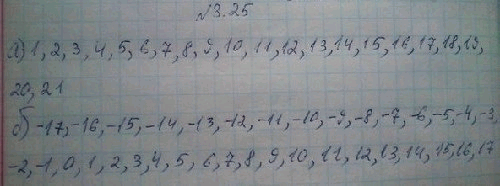 №3.25
а) 1, 2, 3, 4, 5, 6, 7, 8, 9, 10, 11, 12, 13, 14, 15, 16, 17, 18, 19,
20, 21
б) -17, -16, -15, -14, -13, -12, -11, -10, -9, -8, -7, -6, -5, -4, -3,
-2, -1, 0, 1, 2, 3, 4, 5, 6, 7, 8, 9, 10, 11, 12, 13, 14, 15, 16, 17